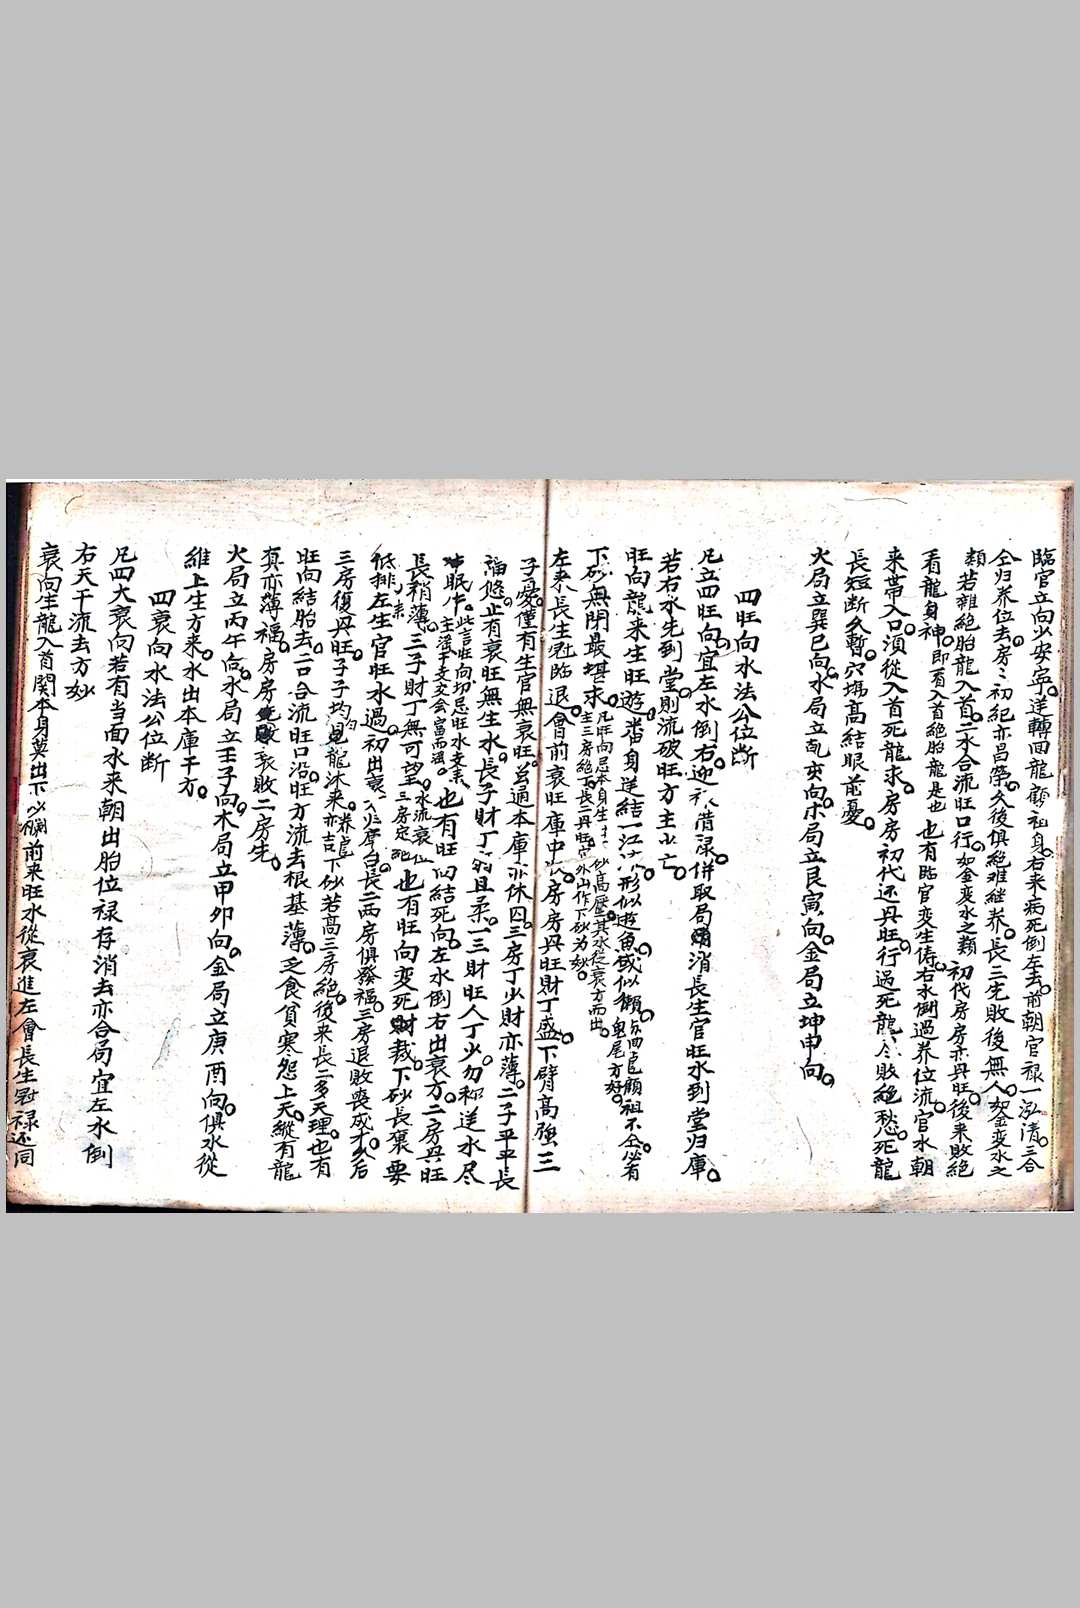 臨官立向少安寧。逆轉回龍顧祖身。右来病死倒左去。前朝官禄一泓清。三合
全归养位去。房〻初紀亦昌榮。久後俱絶难继养。長三先敗後無人。如金变水之
類 若雜絶胎龍入首。二水合流旺口行。如金变水之類 初代房房亦丹旺。後来敗絶
看龍身神。即看入首絶胎龍是也 也有臨官变生侍。右水倒過养位流。官水朝
来带入口。須從入首死龍求。房房初代还丹旺。行過死龍 敗絶愁。死龍
長短断久暫。穴塲髙結眼前憂。
火局立巽巳向。水局立乾亥向。木局立艮寅向。金局立坤申向。
四旺向水法公位断
凡立四旺向。宜左水倒右。迎 借禄。併取局 消長生官旺水到堂归庫。
若右水先到堂。則流破旺方主少亡。
旺向龍来生旺遊。番身送結一江 形似遊魚或似獺。 回尾顧祖不全必有
下砂無閉最堪求。凡旺向忌本身生 砂髙壓。其水従衰方而出。 鬼尾方好。 主三房絶丁。長二丹旺。 外山作下砂为妙。
左来長生冠臨退。會前衰旺庫中 房房丹旺財丁盛。下臂髙強三
子憂。僅有生官無衰旺。 過本庫亦休囚。三房丁少財亦薄。二子平平長
悠。止有衰旺無生水。長子財丁 弱且柔。三財旺人丁少。勿称送水尽
眠 此言旺向切忌旺水支来。 主滛干支交会富而滛。 也有旺向結死向。左水倒右出衰方。二房丹旺
長稍薄。三子財丁無可望。水流衰位 三房定 也有旺向变死 裁。下砂長裹要
低排 左生官旺水過。初出衰 長二两房俱發福。三房退敗喪成才。久后
三房復丹旺。子子均 龍沐来。 养 亦吉 下砂若髙三房絶。後来長二多夭理。也有
旺向結胎去。二口合流旺口沿。旺方流去根基薄。乏食貧寒怨上天。縱有龍
真亦薄福。房房 衰敗二房先。
火局立丙午向。水局立壬子向。木局立甲卯向。金局立庚酉向。俱水從
維上生方来。水出本庫干方。
四衰向水法公位断
凡四大衰向若有当面水来朝出胎位禄存消去亦合局宜左水倒
右天干流去方妙
衰向生龍入首関本身莫出下砂攔前来旺水從衰進左會長生冠禄还同